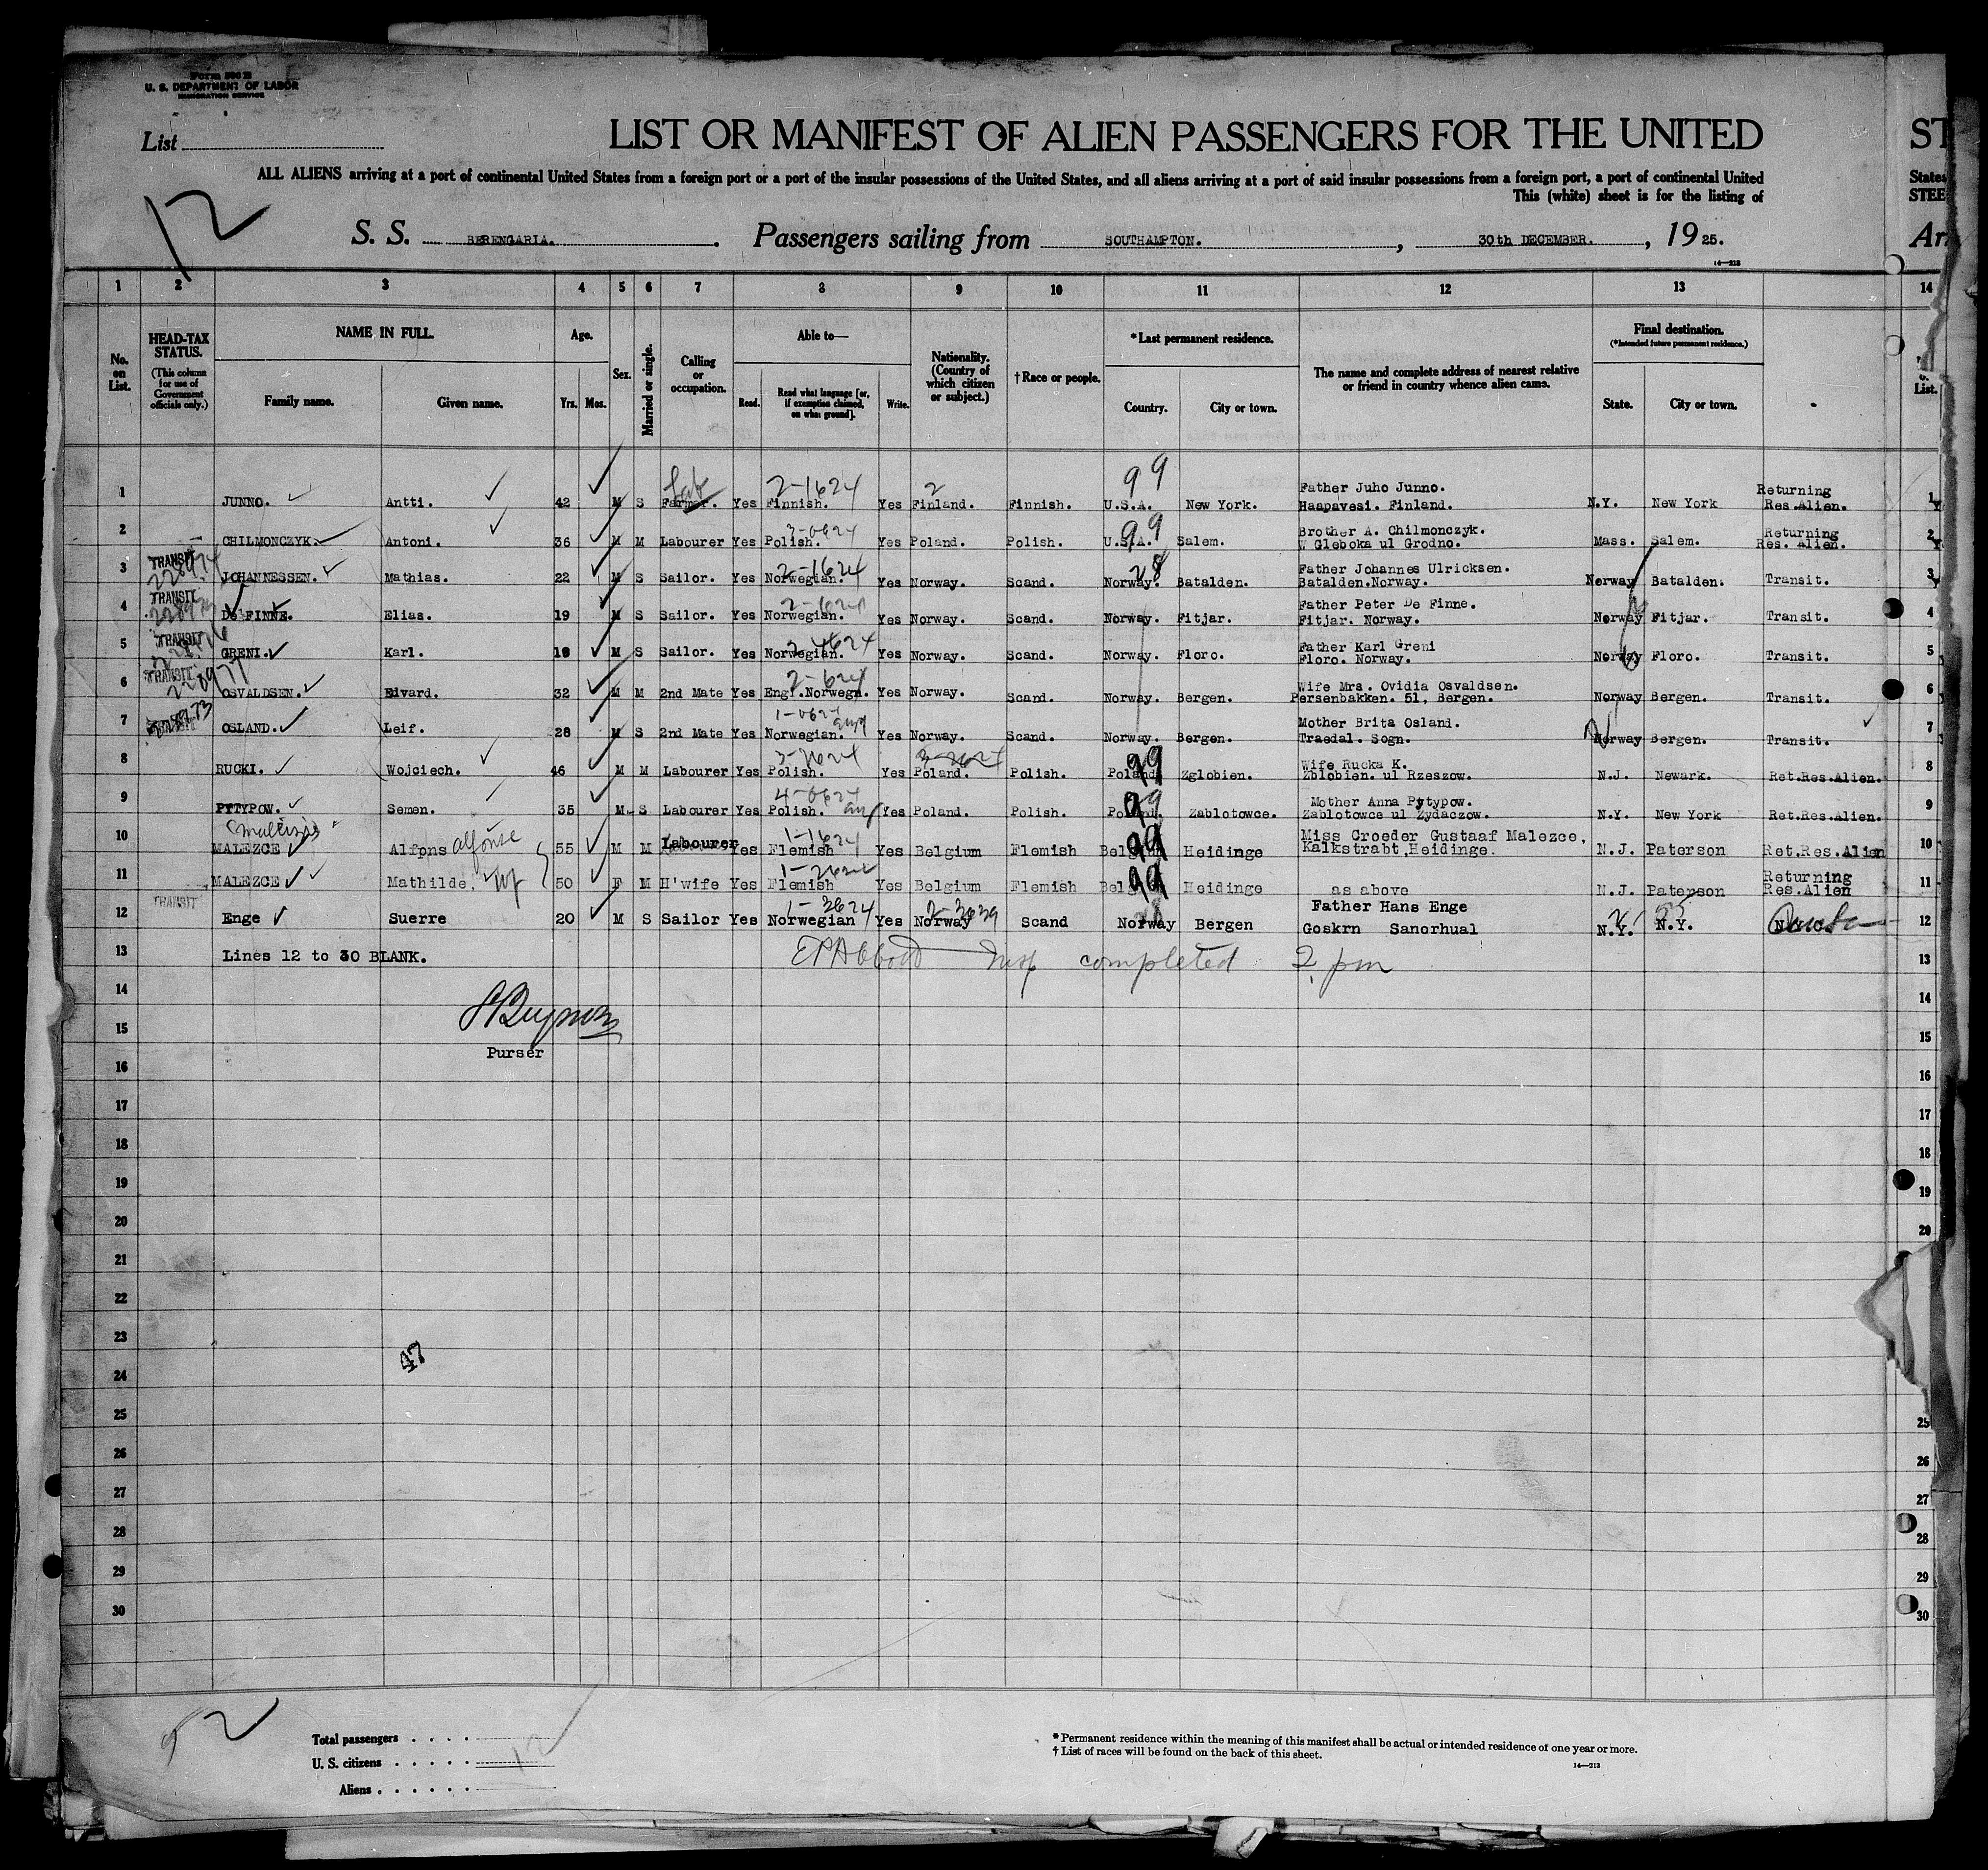 Form 500 B
U. S. DEPARTMENT OF LABOR
IMMIGRATION SERVICE
List
12
LIST OR MANIFEST OF ALIEN PASSENGERS FOR THE UNITED
ST
ALL ALIENS arriving at a port of continental United States from a foreign port or a port of the insular possessions of the United States, and all aliens arriving at a port of said insular possessions from a foreign port, a port of continental United
States
This (white) sheet is for the listing of
STEE
S. S. BERENGARIA. Passengers sailing from SOUTHAMPTON. , 30th DECEMBER. , 1925.
Ar
14—213
1 2 3 4 5 6 7 8 9 10 11 12 13 14
No. on List.
HEAD-TAX STATUS.
(This column for use of Government officials only.)
NAME IN FULL.
Family name. Given name.
Age.
Yrs. Mos.
Sex.
Married or single.
Calling or occupation.
Able to—
Read. Read what language [or, if exemption claimed, on what ground]. Write.
Nationality. (Country of which citizen or subject.)
† Race or people.
* Last permanent residence.
Country. City or town.
The name and complete address of nearest relative or friend in country whence alien came.
Final destination.
(* Intended future permanent residence.)
State. City or town.
List.
2-1624 2 99
1 JUNNO. Antti. 42 M S Farmer. Yes Finnish. Yes Finland. Finnish. U.S.A. New York. Father Juho Junno. Haapavesi. Finland. N.Y. New York Returning Res.Alien. 1
99
2 CHILMONCZYK. Antoni. 36 M M Labourer Yes Polish. Yes Poland. Polish. U.S.A. Salem. Brother A. Chilmonczyk. W Gleboka ul Grodno. Mass. Salem. Returning Res. Alien. 2
TRANSIT 2-1624 28
3 JOHANNESSEN. Mathias. 22 M S Sailor. Yes Norwegian. Yes Norway. Scand. Norway. Batalden. Father Johannes Ulricksen. Batalden.Norway. Norway Batalden. Transit. 3
TRANSIT
4 De FINNE. Elias. 19 M S Sailor. Yes Norwegian. Yes Norway. Scand. Norway. Fitjar. Father Peter De Finne. Fitjar. Norway. Norway Fitjar. Transit. 4
TRANSIT
5 GRENI. Karl. 19 M S Sailor. Yes Norwegian. Yes Norway. Scand. Norway. Floro. Father Karl Greni Floro. Norway. Norway Floro. Transit. 5
TRANSIT 2-624
6 OSVALDSEN. Edvard. 32 M M 2nd Mate Yes Engl.Norwegn. Yes Norway. Scand. Norway. Bergen. Wife Mrs. Ovidia Osvaldsen. Persenbakken. 51, Bergen. Norway Bergen. Transit. 6
1-0624
7 OSLAND. Leif. 28 M S 2nd Mate Yes Norwegian. Yes Norway. Scand. Norway. Bergen. Mother Brita Osland. Traedal. Sogn. Norway Bergen. Transit. 7
3-2624 99
8 RUCKI. Wojciech. 46 M M Labourer Yes Polish. Yes Poland. Polish. Poland. Zglobien. Wife Rucka K. Zblobien. ul Rzeszow. N.J. Newark. Ret.Res.Alien. 8
4-0624 99
9 PYTYPOW. Semen. 35 M S Labourer Yes Polish. Yes Poland. Polish. Poland. Zablotowce. Mother Anna Pytypow. Zablotowce ul Zydaczow. N.Y. New York Ret.Res.Alien. 9
1-1624 99
10 MALEZCE Alfons Alfonse 55 M M Labourer Yes Flemish Yes Belgium Flemish Belgium Heidinge Miss Croeder Gustaaf Malezce, Kalkstrabt,Heidinge. N.J. Paterson Ret.Res.Alien 10
99
11 MALEZCE Mathilde, wf 50 F M H'wife Yes Flemish Yes Belgium Flemish Belgium Heidinge as above N.J. Paterson Returning Res.Alien 11
TRANSIT 1-3624
12 Enge Suerre 20 M S Sailor Yes Norwegian Yes Norway Scand Norway Bergen Father Hans Enge Goskrn Sanorhual N.Y. N.Y. 12
13 Lines 12 to 30 BLANK. Insp completed 2 pm 13
14 14
15 15
Purser
16 16
17 17
18 18
19 19
20 20
21
22
23
47
24
25 25
26 26
27 27
28 28
29 29
30 30
Total passengers
U. S. citizens 12
Aliens
* Permanent residence within the meaning of this manifest shall be actual or intended residence of one year or more.
† List of races will be found on the back of this sheet.
14—213